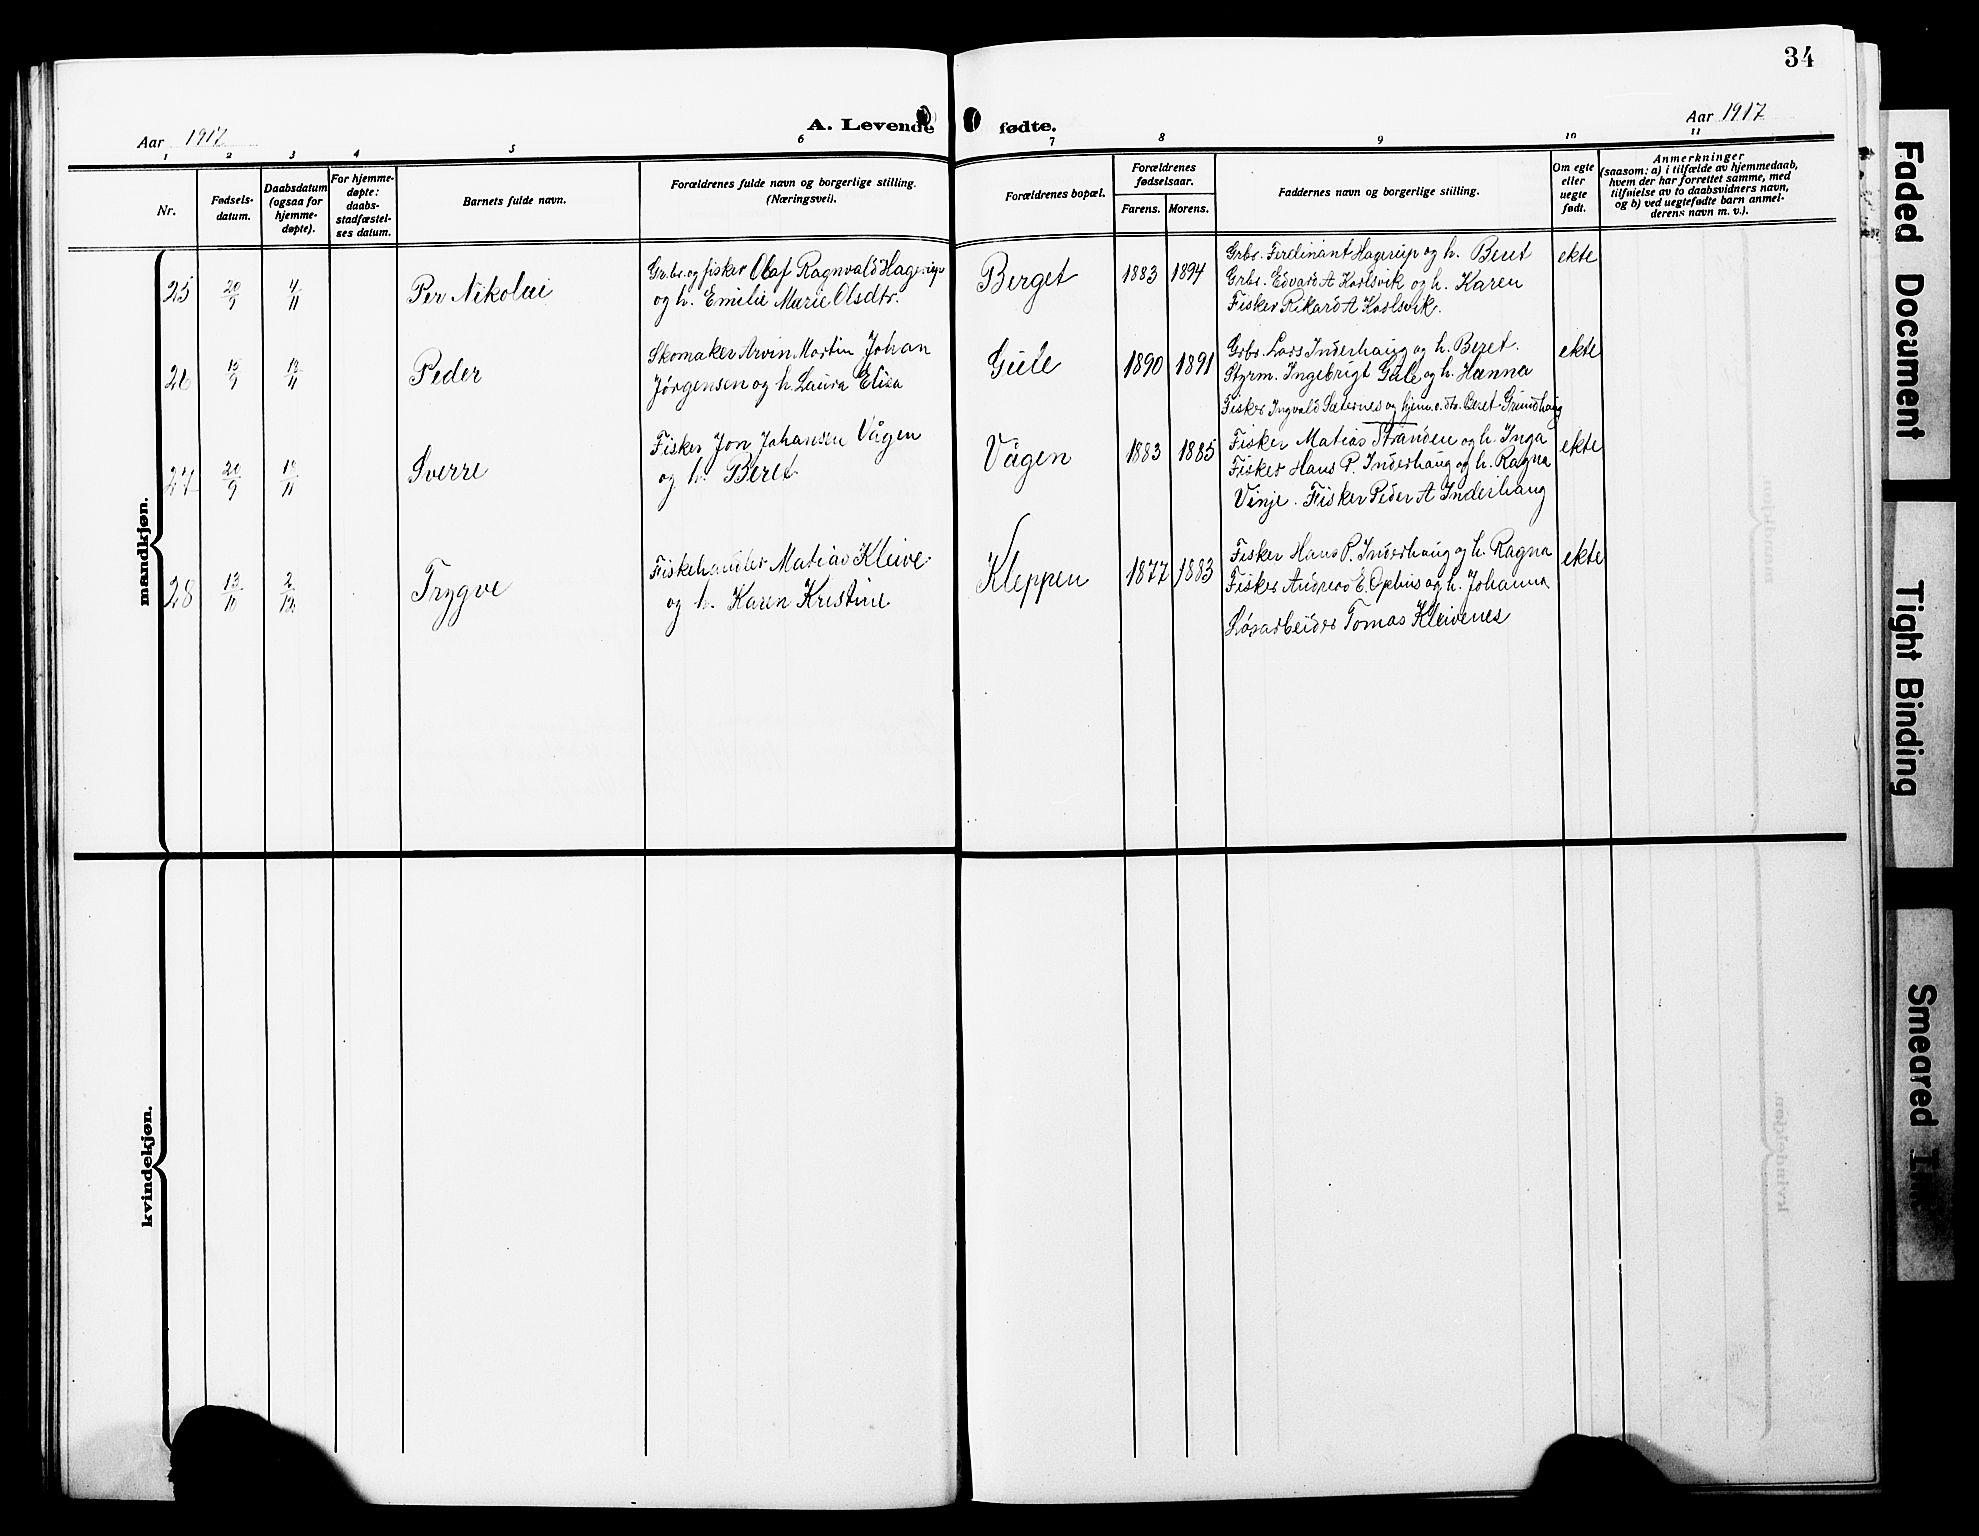 34
Aar 1917
A. Levende fødte.
Aar 1917
1 2 3 4 5 6 7 8 9 10 11
Nr.
Fødsels-
datum.
Daabsdatum
(ogsaa for
hjemme-
døpte).
For hjemme-
døpte:
daabs-
stadfæstel-
ses datum.
Barnets fulde navn.
Forældrenes fulde navn og borgerlige stilling.
(Næringsvei).
Forældrenes bopæl.
Forældrenes
fødselsaar.
Farens. Morens.
Faddernes navn og borgerlige stilling.
Om egte
eller
uegte
født.
Anmerkninger
(saasom: a) i tilfælde av hjemmedaab,
hvem der har forrettet samme, med
tilføielse av to daabsvidners navn,
og b) ved uegtefødte barn anmel-
derens navn m. v.).
mandkjøn.
25
20/9
4/11
Per Nikolai
Grbr. og fisker Olaf Ragnvald Hagerup
og h. Emilie Marie Olsdtr.
Berget
1883 1894
Grbr. Ferdinant Hagerup og h. Beret
Grbr. Edvard A Karlsvik og h. Karen
Fisker Rikard A Karlsvik.
ekte
26
15/9
Peder
Skomaker Arvin Martin Johan
Jørgensen og h. Laura Elisa
Gule
1890 1891
Grbr. Lars Inderhaug og h. Beret.
Styrm. Ingebrigt Gule og h. Hanna
Fisker Ingvald Sæternes og hjem.v. dtr. Beret Grundhaug
ekte
27
20/9
Sverre
Fisker Jon Johansen Vågen
og h. Beret
Vågen
1883 1885
Fisker Matias Stranden og h. Inga
Fisker Hans P. Inderhaug og h. Ragna
Vinje. Fisker Peder A Inderhaug
ekte
28
13/10
2/12
Trygve
Fiskehandler Matias Kleive
og h. Karen Kristine
Kleppen
1877 1883
Fisker Hans P. Inderhaug og h. Ragna
Fisker Andreas E. Ophus og h. Johanna
Løsarbeider Tomas Kleivenes
ekte
kvindekjøn.
Faded Document
Tight Binding
Smeared Ink